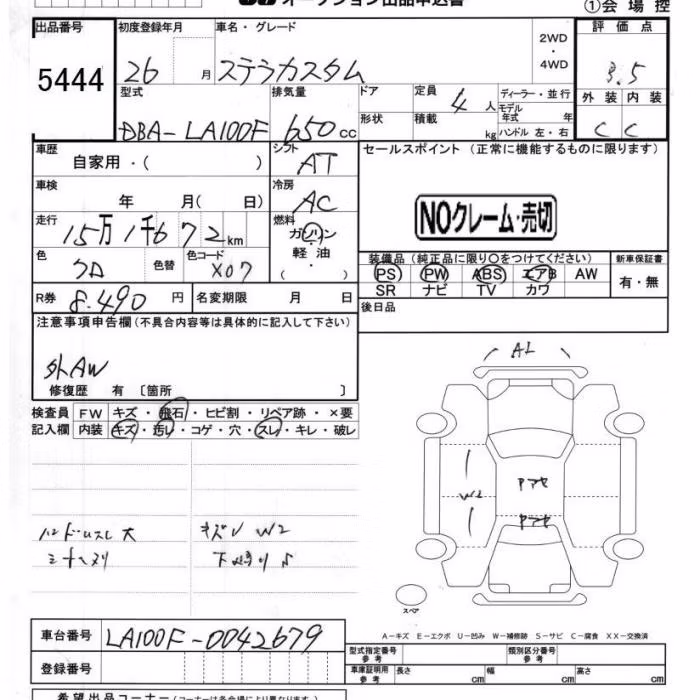 オークション出品申込書
①会場控
出品番号 初度登録年月 車名・グレード 評価点
5444 26 月 ステラカスタム 2WD・4WD 3.5
外装 内装
C C
型式 排気量 ドア 定員 4 人 ディーラー・並行
モデル
年式 年
DBA-LA100F 650 cc 形状 積載 kg ハンドル 左・右
車歴 シフト セールスポイント (正常に機能するものに限ります)
自家用・( ) AT
車検 冷房
年 月( 日) AC
NOクレーム・売切
走行 燃料
15万1千672km ガソリン・軽油・( )
色 色替 色コード 装備品 (純正品に限り○をつけてください) 新車保証書
クロ X07 PS PW ABS エアB AW 有・無
SR ナビ TV カワ
R券 8.490 円 名変期限 月 日 後日品
注意事項申告欄(不具合内容等は具体的に記入して下さい)
外AW
AL
修復歴 有 〔箇所 〕
検査員 FW キズ・飛石・ヒビ割・リペア跡・×要
記入欄 内装 キズ・汚レ・コゲ・穴・スレ・キレ・破レ
W2 Pアセ
Pアセ
ハンドルスレ大 キズV W2
シートヘタリ
スペア
A-キズ E-エクボ U-凹み W-補修跡 S-サビ C-腐食 XX-交換済
車台番号 LA100F-0042679
型式指定番号 参考 類別区分番号 参考
登録番号 車庫証明用 参考 長さ cm 幅 cm 高さ cm
希望出品コーナー(コーナーは各会場により異なります)